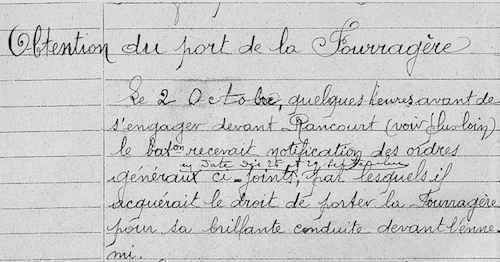 Obtention du port de la Fourragère
Le 2 Octobre, quelques heures avant de
s'engager devant Rancourt (voir plus loin)
le baton recevait notification des ordres
en date des 28 et 29 septembre
généraux ci-joints, par lesquels il
acquérait le droit de porter la Fourragère
pour sa brillante conduite devant l'enne-
mi.